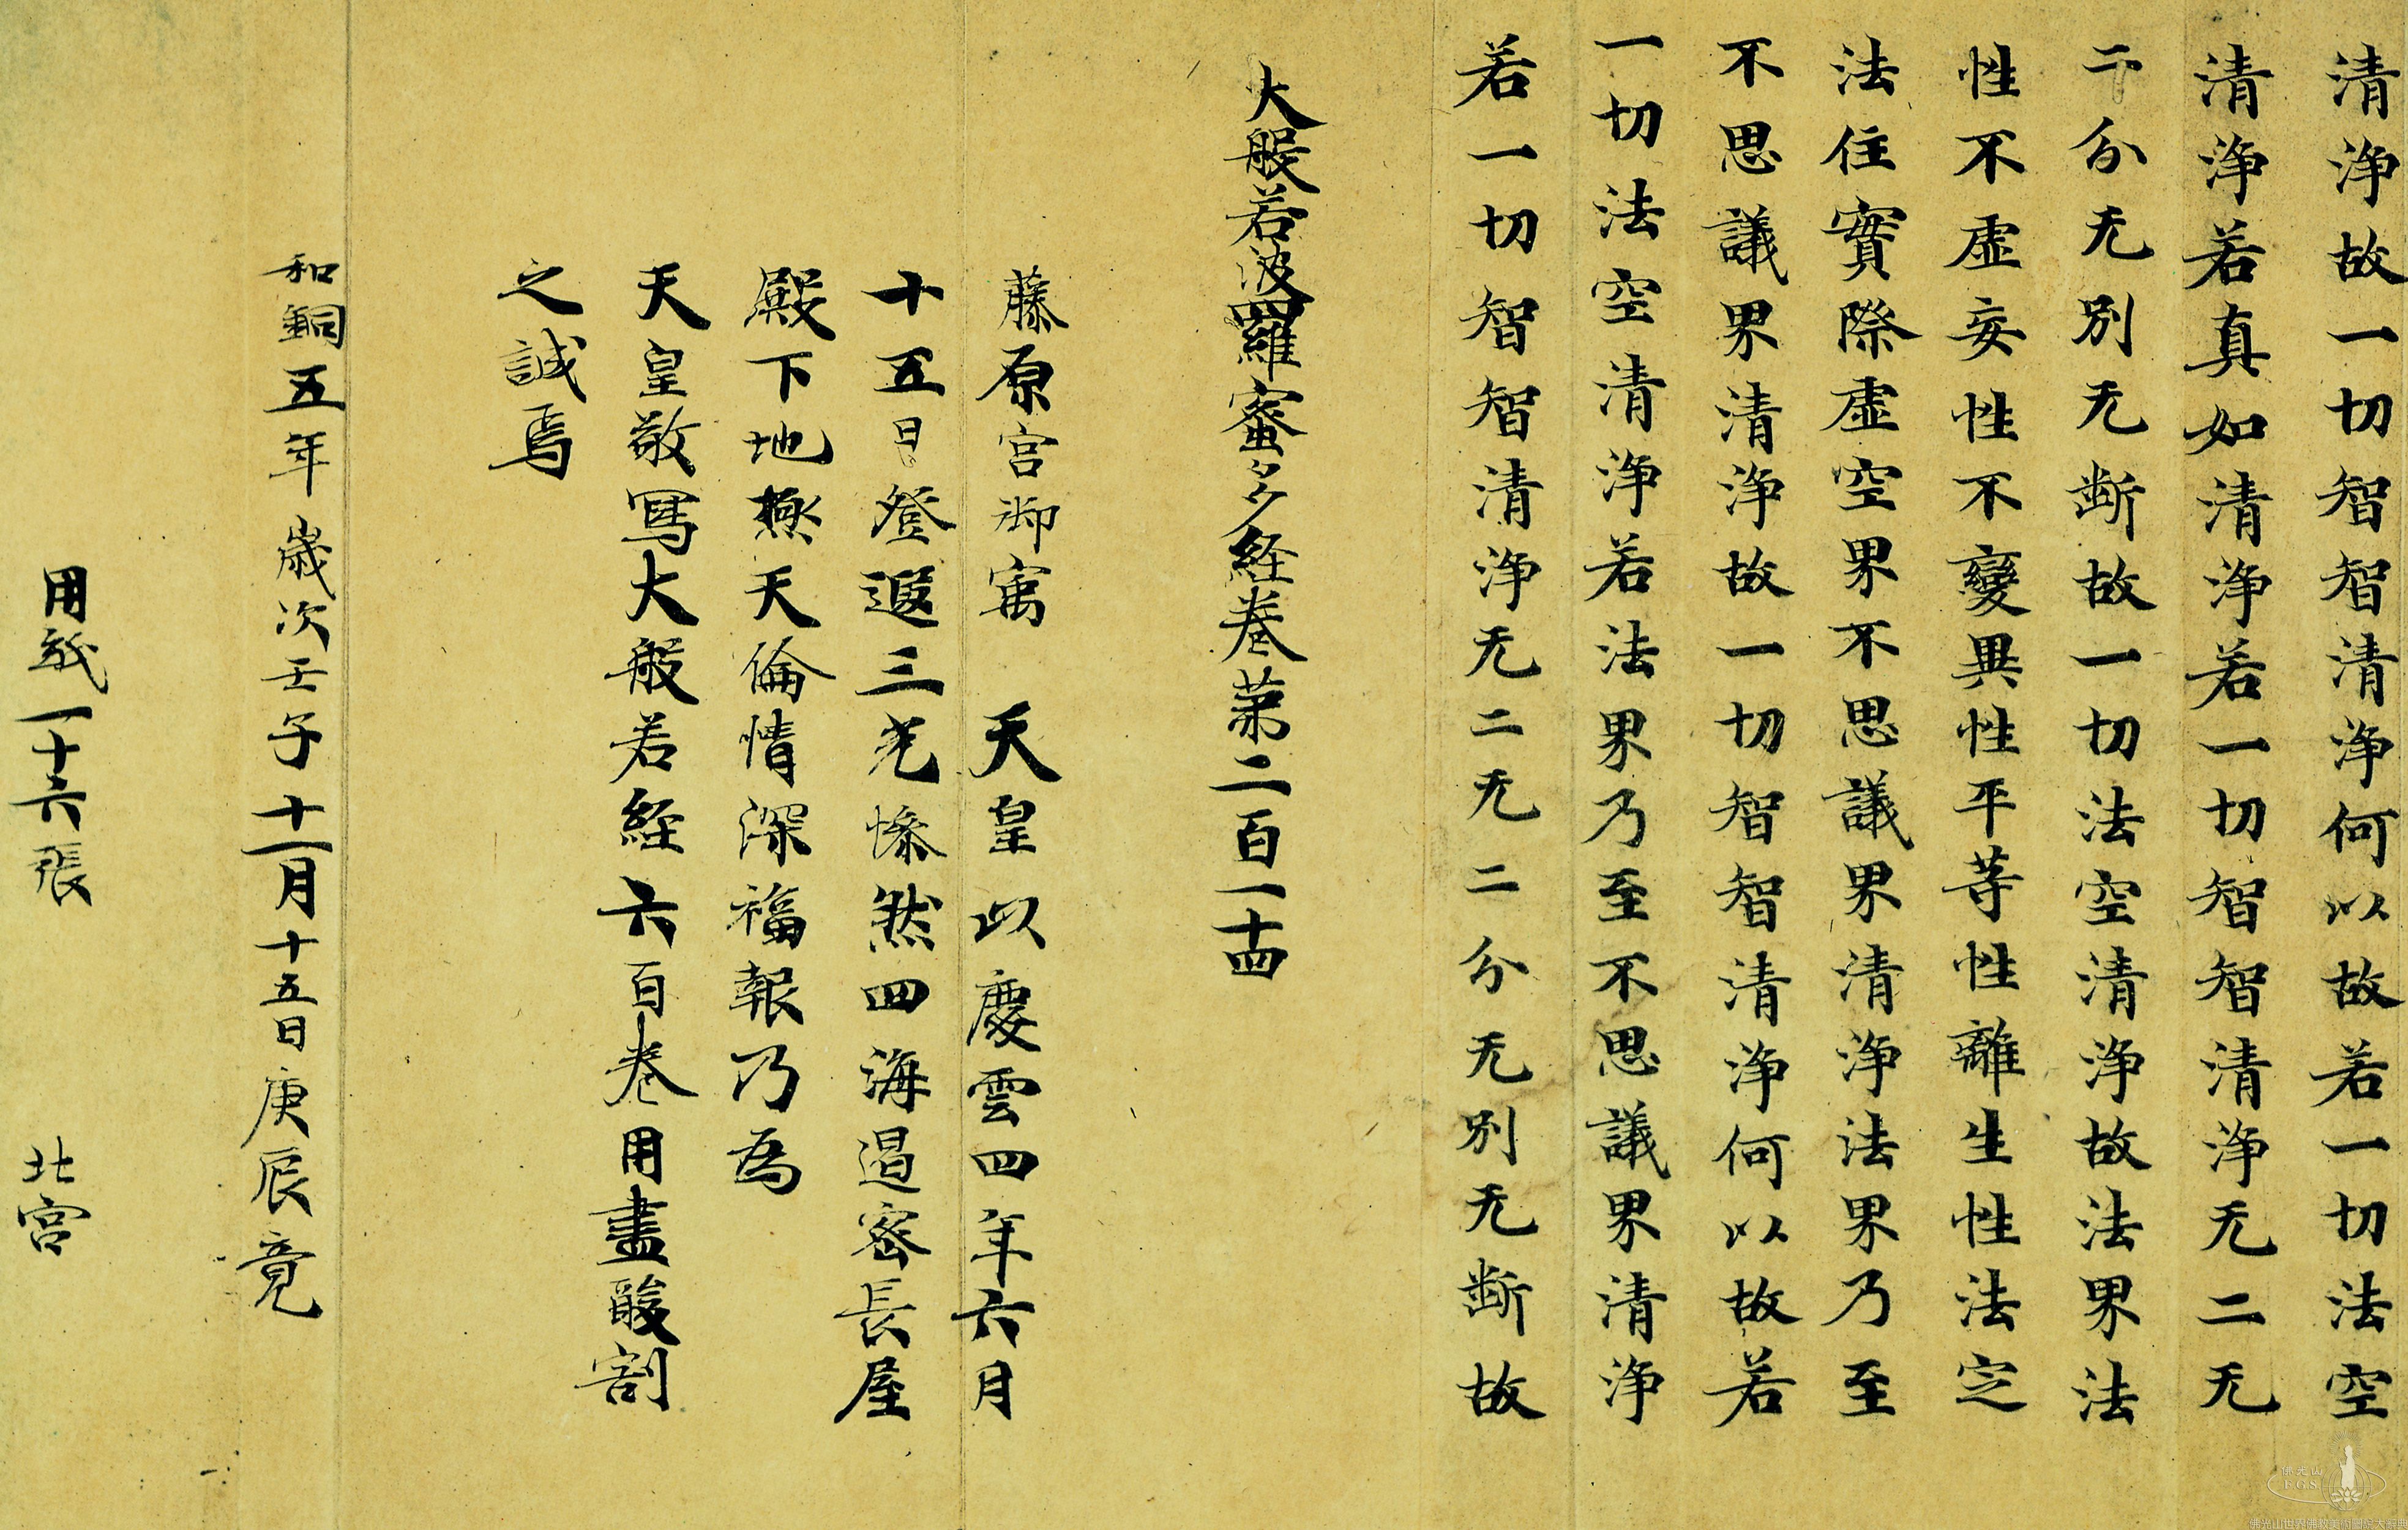 清淨故一切智智清淨何以故若一切法空
清淨若真如清淨若一切智智清淨无二无
二分无別无断故一切法空清淨故法界法
性不虛妄性不變異性平等性離生性法定
法住實際虛空界不思議界清淨法界乃至
不思議界清淨故一切智智清淨何以故若
一切法空清淨若法界乃至不思議界清淨
若一切智智清淨无二无二分无別无断故
大般若波羅蜜多経卷第二百一十四
藤原宮御寓 天皇以慶雲四年六月
十五日登遐三光惨然四海遏密長屋
殿下地極天倫情深福報乃為
天皇敬寫大般若経六百卷用盡酸割
之誠焉
和銅五年歲次壬子十一月十五日庚辰竟
用紙一十六張 北宮
佛光山
F.G.S.